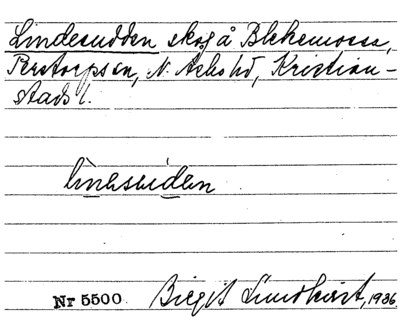 Lindesudden skog å Blekemossa,
Perstorps sn, N. Åsbo hd, Kristian-
stads l.
lineseiden
Nr 5500 Birgit Lundkvist, 1936